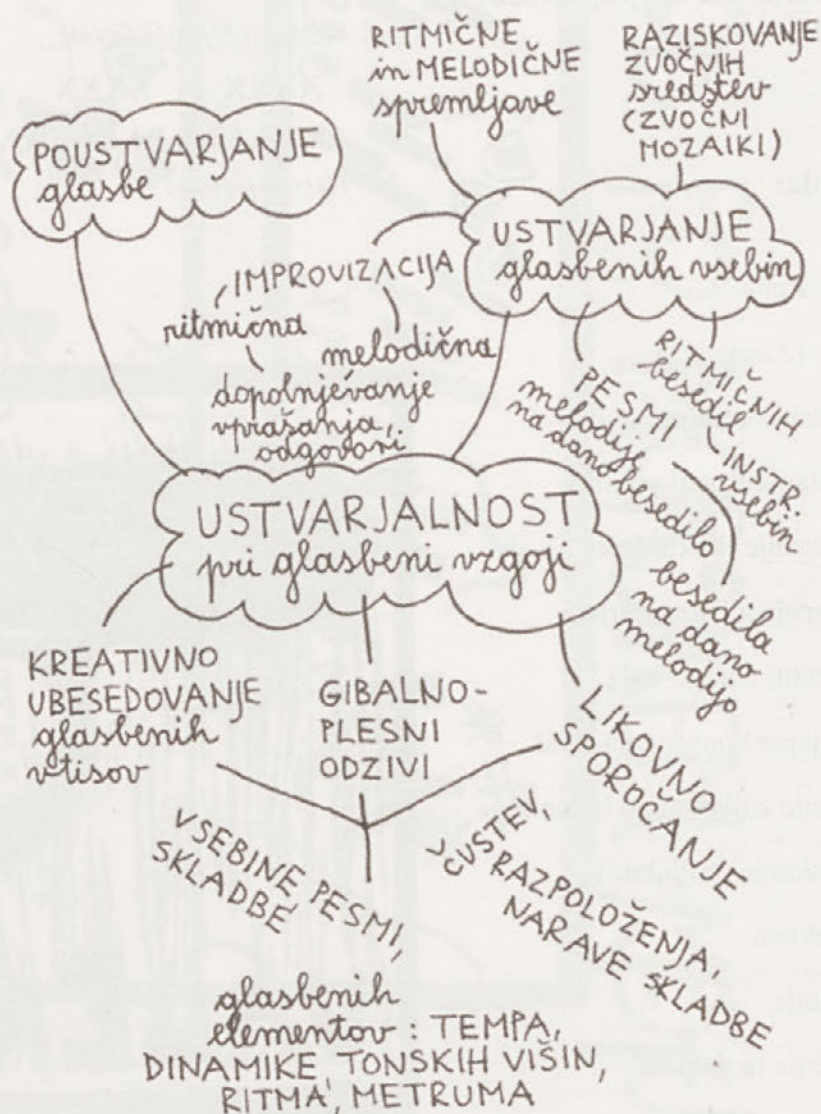 RITMIČNE
in MELODIČNE
spremljave
RAZISKOVANJE
ZVOČNIH
sredstev
(ZVOČNI
MOZAIKI)
POUSTVARJANJE
glasbe
USTVARJANJE
glasbenih vsebin
IMPROVIZACIJA
ritmična
melodična
dopolnjevanje
vprašanja,
odgovori
RITMIČNIH
besedil
INSTR.
vsebin
PESMI
melodije
na dano besedilo
besedila
na dano
melodijo
USTVARJALNOST
pri glasbeni vzgoji
KREATIVNO
UBESEDOVANJE
glasbenih
vtisov
GIBALNO-
PLESNI
ODZIVI
LIKOVNO
SPOROČANJE
VSEBINE PESMI,
SKLADBE
ČUSTEV,
RAZPOLOŽENJA,
NARAVE SKLADBE
glasbenih
elementov: TEMPA,
DINAMIKE, TONSKIH VIŠIN,
RITMA, METRUMA